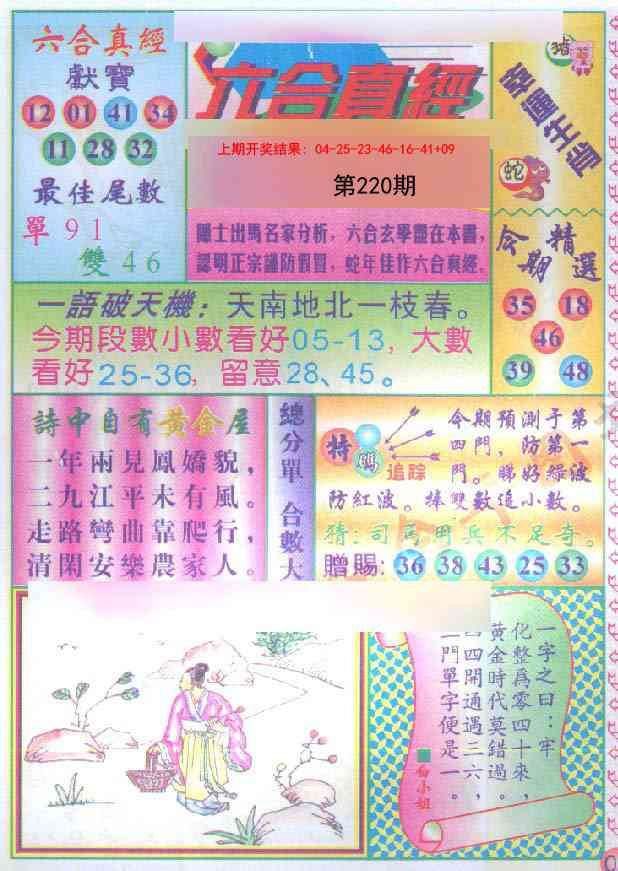 六合真經
獻寶
12 01 41 34
11 28 32
最佳尾數
單 9 1
雙 4 6
六合真經
上期开奖结果：04-25-23-46-16-41+09
第220期
隱士出馬名家分析，六合玄學盡在本書，
認明正宗謹防假冒，蛇年佳作六合真經。
豬
蛇
今期
精選
35 18
46
39 48
一語破天機：天南地北一枝春。
今期段數小數看好05-13，大數
看好25-36，留意28、45。
詩中自有黃金屋
一年兩見鳳嬌貌，
二九江平未有風。
走路彎曲靠爬行，
清閑安樂農家人。
總分單 合數大
特碼追踪
今期預測于第
四門，防第一
門。睇好綠波
防紅波。捧雙數追小數。
猜：司馬用兵不足奇。
贈賜：36 38 43 25 33
一字之曰：牢
化整爲零四十來，
黃金時代莫錯過。
四四開通遇三六，
二門單字便是一。
白小姐